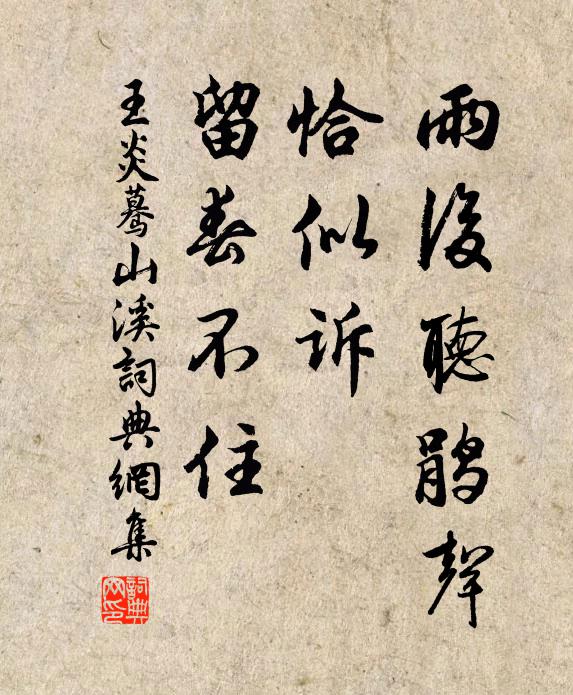 雨後聽鵑聲
恰似訴
留春不住
王炎驀山溪詞典網集
詞典網印